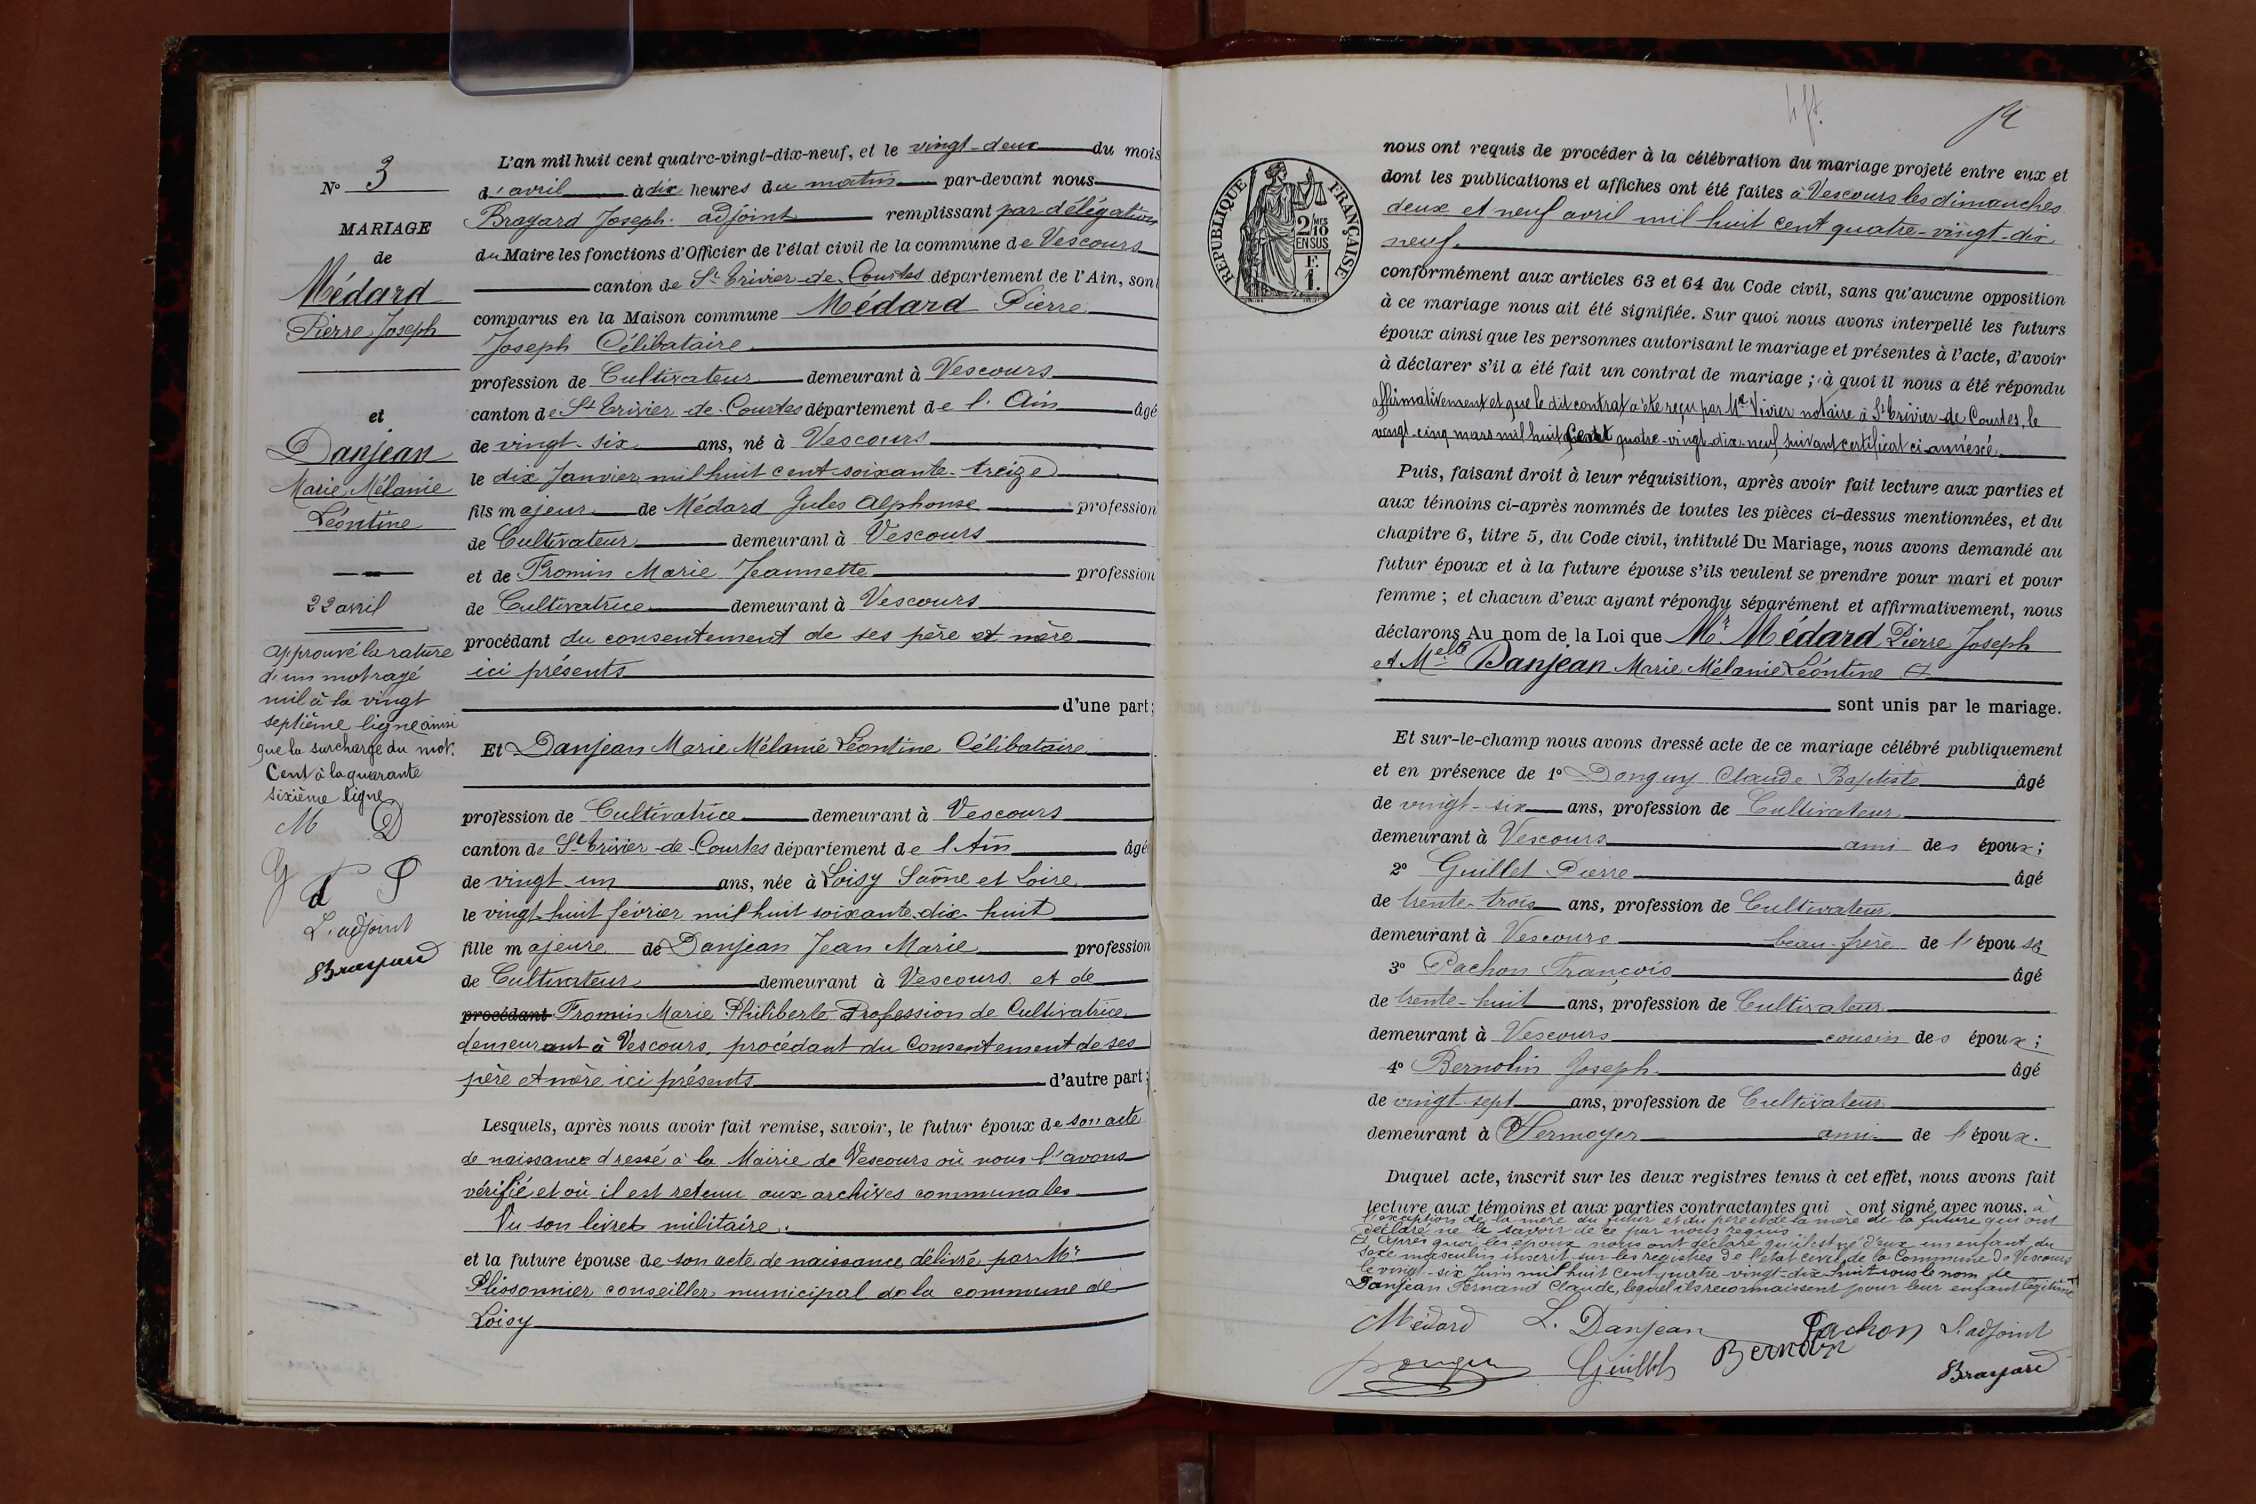 N° 3
MARIAGE
de
Médard
Pierre Joseph
et
Danjean
Marie Mélanie
Léontine
22 avril
approuvé la rature
d'un mot rayé
nul à la vingt
septième ligne ainsi
que la surcharge du mot.
Cent à la quarante
sixième ligne
M D
G d P
L'adjoint
Brayard
L'an mil huit cent quatre-vingt-dix-neuf, et le vingt-deux du mois
d'avril à dix heures du matin par-devant nous
Brayard Joseph. adjoint remplissant par délégation
du Maire les fonctions d'Officier de l'état civil de la commune de Vescours
canton de St Trivier-de-Courtes département de l'Ain, sont
comparus en la Maison commune Médard Pierre
Joseph Célibataire
profession de Cultivateur demeurant à Vescours
canton de St Trivier-de-Courtes département de l'Ain âgé
de vingt-six ans, né à Vescours
le dix Janvier mil huit cent soixante-treize
fils majeur de Médard Jules Alphonse profession
de Cultivateur demeurant à Vescours
et de Fromin Marie Jeannette profession
de Cultivatrice demeurant à Vescours
procédant du consentement de ses père et mère
ici présents
d'une part;
Et Danjean Marie Mélanie Léontine Célibataire
profession de Cultivatrice demeurant à Vescours
canton de St Trivier-de-Courtes département de l'Ain âgé
de vingt-un ans, née à Loisy Saône et Loire
le vingt-huit février mil huit soixante-dix-huit
fille majeure de Danjean Jean Marie profession
de Cultivateur demeurant à Vescours et de
procédant Fromin Marie Philiberte Profession de Cultivatrice
demeurant à Vescours, procédant du Consentement de ses
père et mère ici présents d'autre part;
Lesquels, après nous avoir fait remise, savoir, le futur époux de son acte
de naissance dressé à la Mairie de Vescours où nous l'avons
vérifié et où il est retenu aux archives communales
Vu son livret militaire.
et la future épouse de son acte de naissance délivré par Mr
Plissonnier conseiller municipal de la commune de
Loisy
RÉPUBLIQUE FRANÇAISE
2/10 MES
EN SUS
F.
1.
nous ont requis de procéder à la célébration du mariage projeté entre eux et
dont les publications et affiches ont été faites à Vescours les dimanches
deux et neuf avril mil huit cent quatre-vingt-dix
neuf.
conformément aux articles 63 et 64 du Code civil, sans qu'aucune opposition
à ce mariage nous ait été signifiée. Sur quoi nous avons interpellé les futurs
époux ainsi que les personnes autorisant le mariage et présentes à l'acte, d'avoir
à déclarer s'il a été fait un contrat de mariage; à quoi il nous a été répondu
affirmativement et que le dit contrat a été reçu par Me Vivier notaire à St Trivier-de-Courtes, le
vingt-cinq mars mil huit Cent quatre-vingt-dix-neuf suivant certificat ci-annéxé.
Puis, faisant droit à leur réquisition, après avoir fait lecture aux parties et
aux témoins ci-après nommés de toutes les pièces ci-dessus mentionnées, et du
chapitre 6, titre 5, du Code civil, intitulé Du Mariage, nous avons demandé au
futur époux et à la future épouse s'ils veulent se prendre pour mari et pour
femme; et chacun d'eux ayant répondu séparément et affirmativement, nous
déclarons Au nom de la Loi que Mr Médard Pierre Joseph
et Melle Danjean Marie Mélanie Léontine
sont unis par le mariage.
Et sur-le-champ nous avons dressé acte de ce mariage célébré publiquement
et en présence de 1° Donguy Claude Baptiste âgé
de vingt-six ans, profession de Cultivateur
demeurant à Vescours ami des époux;
2° Guillet Pierre âgé
de trente-trois ans, profession de Cultivateur
demeurant à Vescours beau-frère de l'épouse
3° Pachon François âgé
de trente-huit ans, profession de Cultivateur
demeurant à Vescours cousin des époux;
4° Bernolin Joseph. âgé
de vingt-sept ans, profession de Cultivateur
demeurant à Vermoyer ami de l'époux.
Duquel acte, inscrit sur les deux registres tenus à cet effet, nous avons fait
lecture aux témoins et aux parties contractantes qui ont signé avec nous. à
l'exception de la mère du futur et du père et de la mère de la future qui ont
déclaré ne le savoir de ce par nous requis
Et Après quoi les époux nous ont déclaré qu'il est né d'eux un enfant du
sexe masculin inscrit sur les registres de l'état civil de la Commune de Vescours
le vingt-six Juin mil huit Cent quatre-vingt-dix-huit sous le nom de
Danjean Fernand Claude, lequel ils reconnaissent pour leur enfant légitime
Médard L. Danjean Pachon L'adjoint
Donguy Guillet Bernolin Brayard